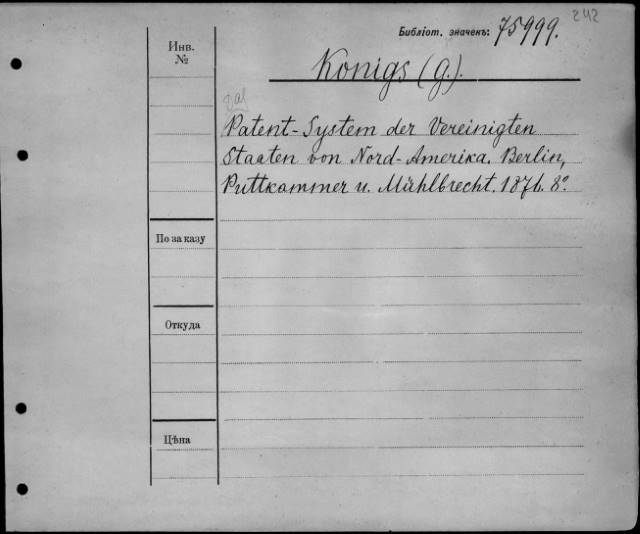 242
Библіот. значекъ: 75999.
Инв.
№
Konigs (G.).
Das
Patent-System der Vereinigten
Staaten von Nord-Amerika. Berlin,
Puttkammer u. Mühlbrecht. 1876. 8º.
По заказу
Откуда
Цѣна